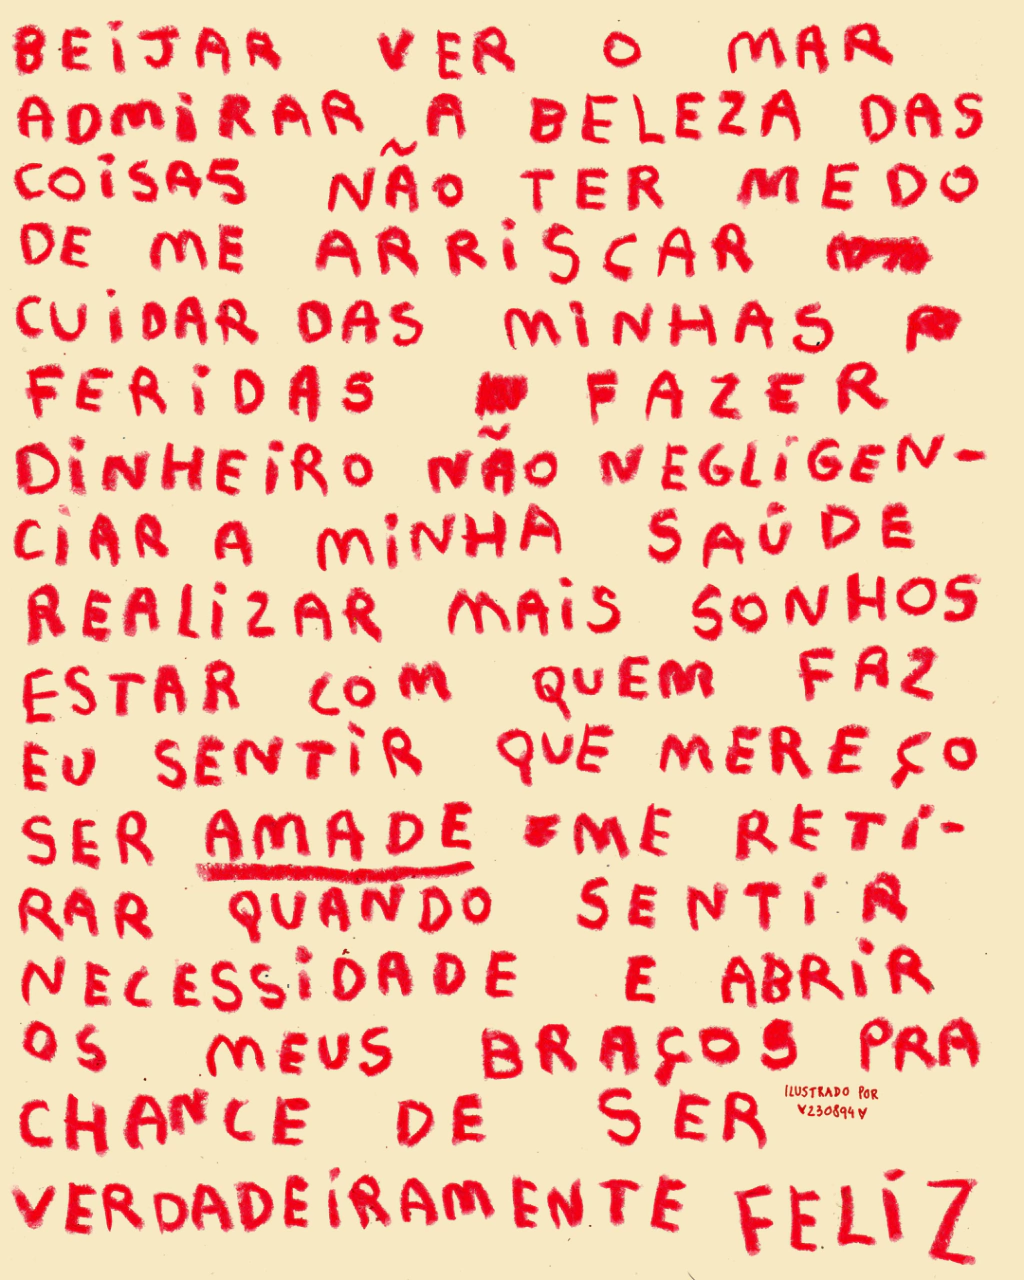 BEIJAR VER O MAR
ADMIRAR A BELEZA DAS
COISAS NÃO TER MEDO
DE ME ARRISCAR
CUIDAR DAS MINHAS
FERIDAS FAZER
DINHEIRO NÃO NEGLIGEN-
CIAR A MINHA SAÚDE
REALIZAR MAIS SONHOS
ESTAR COM QUEM FAZ
EU SENTIR QUE MEREÇO
SER AMADE ME RETI-
RAR QUANDO SENTIR
NECESSIDADE E ABRIR
OS MEUS BRAÇOS PRA
CHANCE DE SER
ILUSTRADO POR
♥230894♥
VERDADEIRAMENTE FELIZ